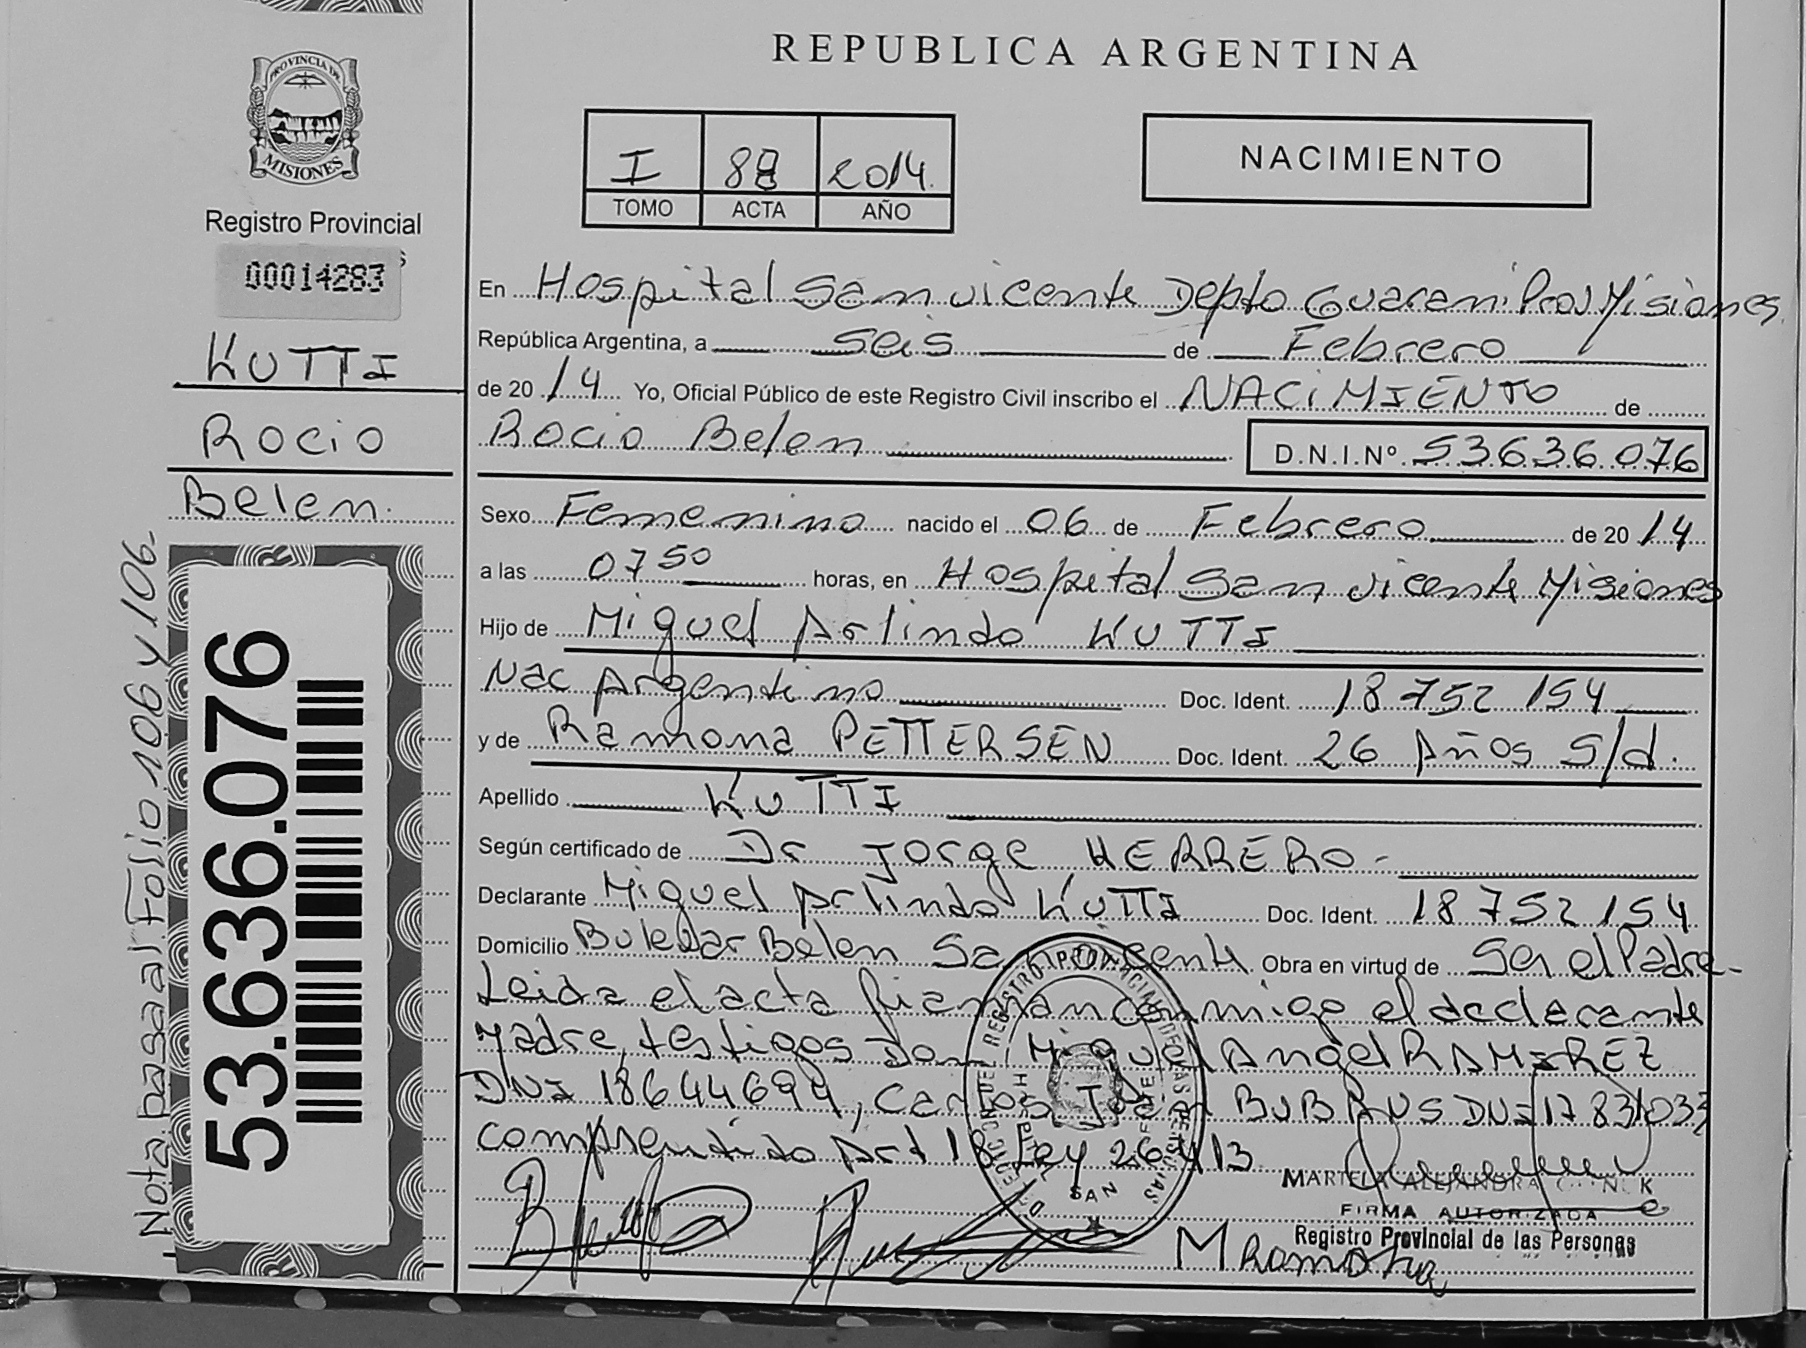 PROVINCIA DE
MISIONES
Registro Provincial
00014283
KUTTI
ROCIO
Belen.
Nota pasa al Folio 106 y 106.
53.636.076
REPUBLICA ARGENTINA
I 88 2014.
TOMO ACTA AÑO
NACIMIENTO
En Hospital San vicente Depto Guarani Prov Misiones
República Argentina, a seis de Febrero
de 20 14 Yo, Oficial Público de este Registro Civil inscribo el NACIMIENTO de
Rocio Belen D.N.I.Nº 53636076
Sexo Femenino nacido el 06 de Febrero de 20 14
a las 07 50 horas, en Hospital San vicente Misiones
Hijo de Miguel Arlindo KUTTI
Nac Argentino Doc. Ident. 18 752 154
y de Ramona PETTERSEN Doc. Ident. 26 Años s/d.
Apellido KUTTI
Según certificado de Dr Jorge HERRERO -
Declarante Miguel Arlindo KUTTI Doc. Ident. 18 752 154
Domicilio Bulevar Belen San vicente. Obra en virtud de Ser el Padre-
Leida el acta firman conmigo el declarante
Madre, testigos Don Miguel Angel RAMIREZ
DNI 18644694, Carlos BUBRUS DNI 17 831033
comprendido Art 18 Ley 26413
MARTELA ALEJANDRA
FIRMA AUTORIZADA
Registro Provincial de las Personas
M Ramona